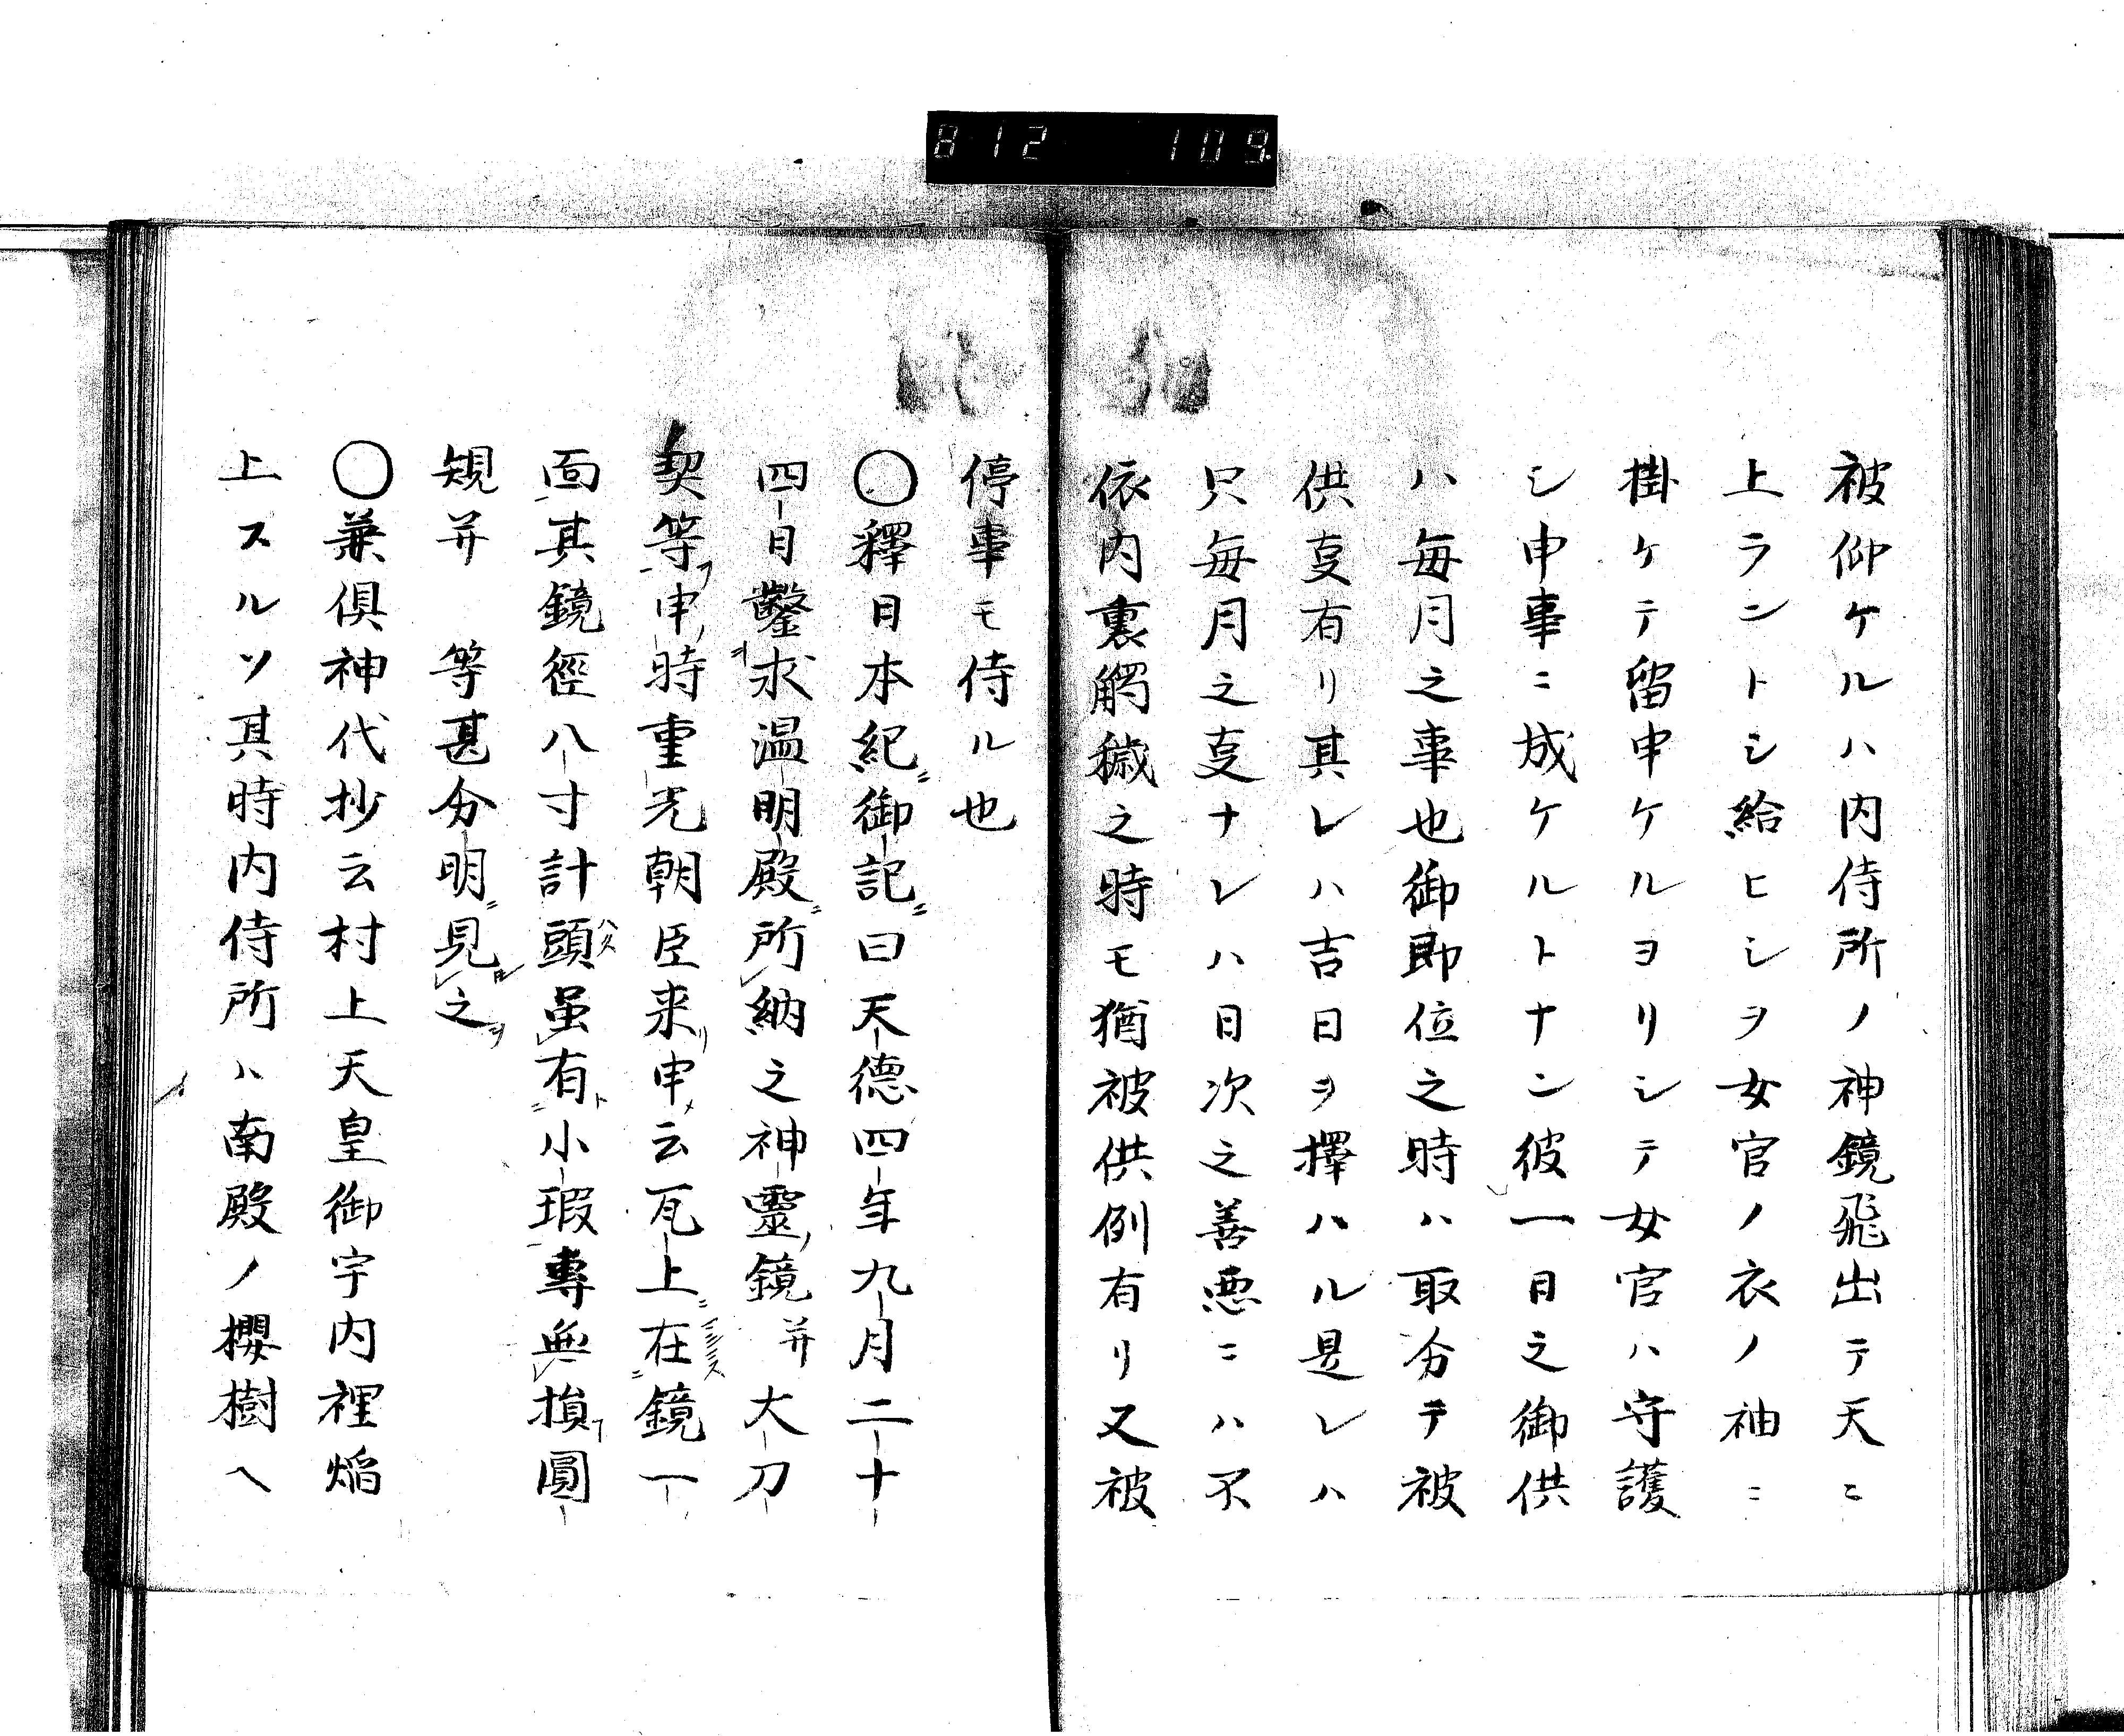 812 109
被仰ケルハ内侍所ノ神鏡飛出テ天ニ
上ラントシ給ヒシヲ女官ノ衣ノ袖ニ
掛ケテ留申ケルヨリシテ女官ハ守護
シ申事ニ成ケルトナン彼一日之御供
ハ毎月之事也御即位之時ハ取分テ被
供㕝有リ其レハ吉日ヲ擇ハル是レハ
只毎月之㕝ナレハ日次之善悪ニハ不
依内裏觸穢之時モ猶被供例有リ又被
停事モ侍ル也
〇釋日本紀御記曰天德四年九月二十
四日鑿求温明殿所納之神靈鏡并大刀
契等申時重光朝臣来申云瓦上在鏡一
面其鏡徑八寸計頭虽有小瑕專無損圓
規并 等甚分明見之
〇兼俱神代抄云村上天皇御宇内裡焔
上スルソ其時内侍所ハ南殿ノ櫻樹ヘ